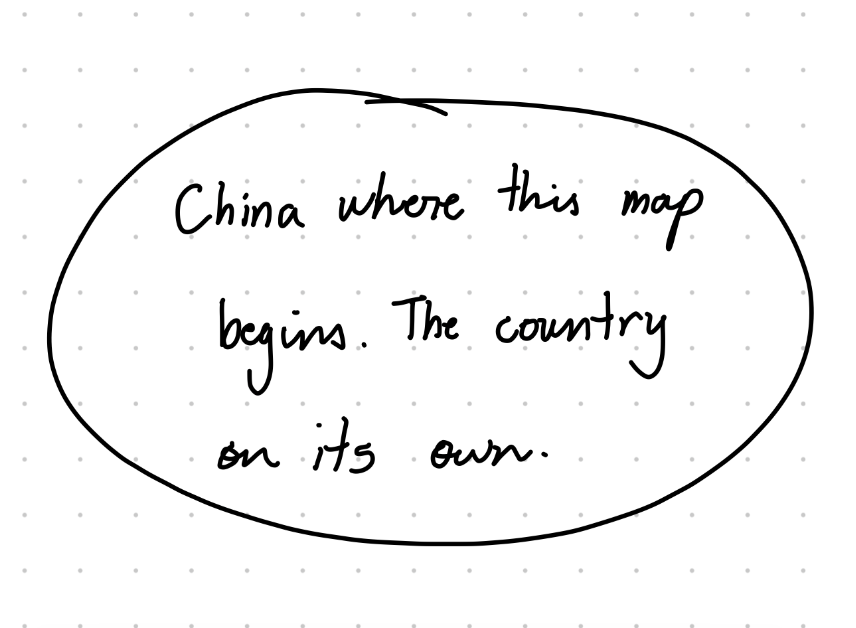 China where this map
begins. The country
on its own.